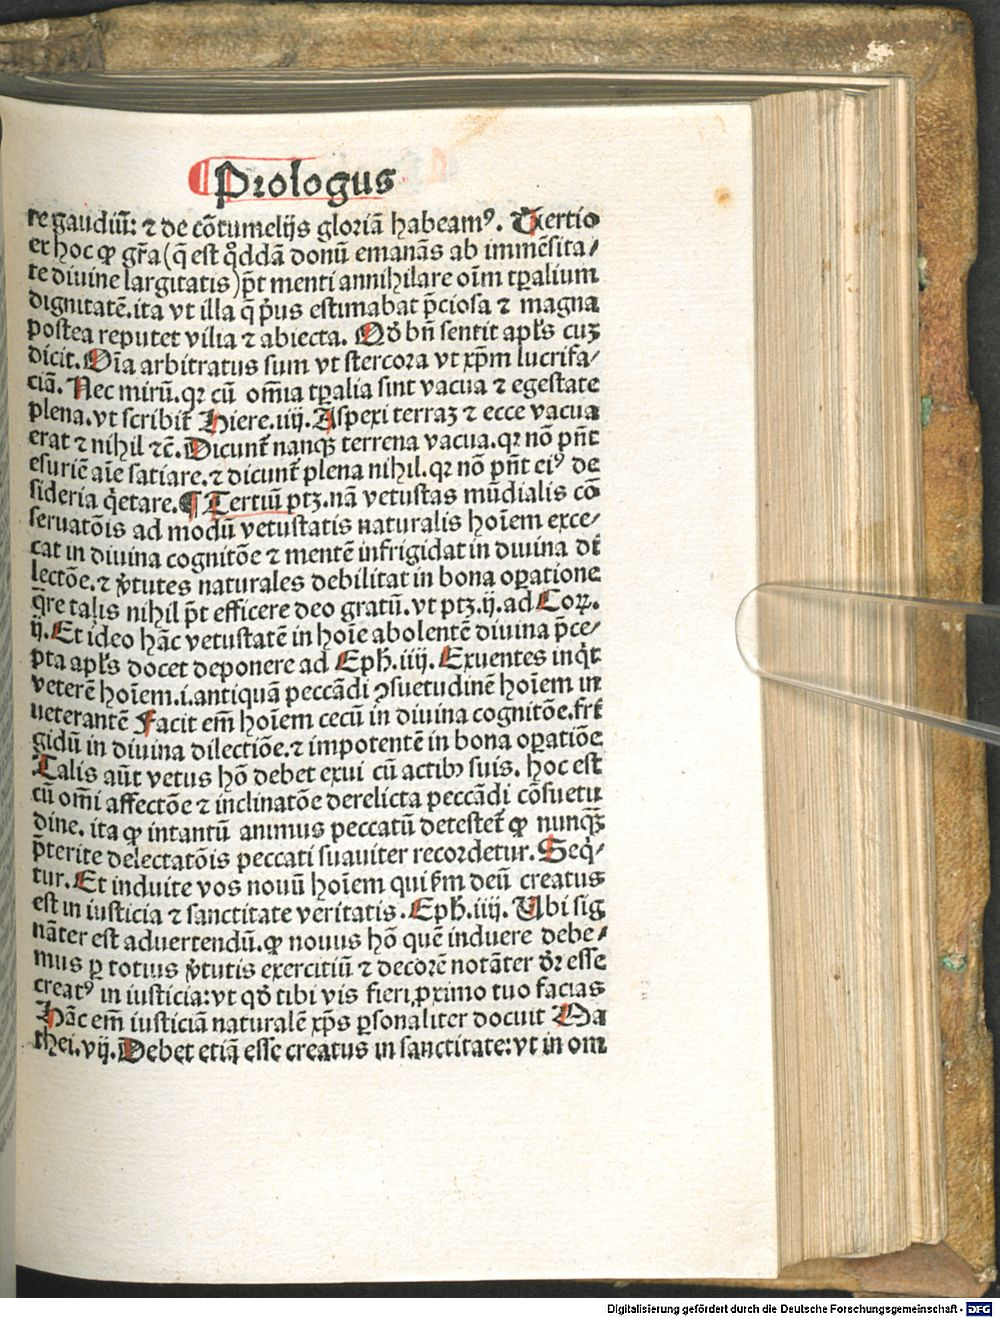 Prologus
re gaudiū: ⁊ de cōtumelijs gloriā habeamꝰ. Tertio
er hoc ꝙ gr̄a (q̄ est qͦddā donū emanās ab immēsita/
te diuine largitatis) pn̄t menti annihilare oīm tꝑalium
dignitatē. ita vt illa q̄ pͥus estimabat p̄ciosa ⁊ magna
postea reputet vilia ⁊ abiecta. Qd̓ bn̄ sentit apl̓s cuꝫ
dicit. Oīa arbitratus sum vt stercora vt xp̄m lucrifa/
ciā. Nec mirū. qꝛ cū om̄ia tꝑalia sint vacua ⁊ egestate
plena. vt scribit̄ Hiere. iiij. Aspexi terraꝫ ⁊ ecce vacua
erat ⁊ nihil ⁊c̄. Dicunt̄ nanqꝫ terrena vacua. qꝛ nō pn̄t
esuriē aīe satiare. ⁊ dicunt̄ plena nihil. qꝛ nō pn̄t eiꝰ de
sideria qͥetare. ¶ Tertiū ptꝫ. nā vetustas mūdialis cō
seruatōis ad modū vetustatis naturalis hoīem exce/
cat in diuina cognitōe ⁊ mentē infrigidat in diuina di
lectōe. ⁊ v̓tutes naturales debilitat in bona oꝑatione
q̄re talis nihil pt̄ efficere deo gratū. vt ptꝫ. ij. ad Coꝝ.
ij. Et ideo hāc vetustatē in hoīe abolentē diuina p̄ce/
pta apl̓s docet deponere ad Eph̓. iiij. Exuentes inqͥt
veterē hoīem. i. antiquā peccādi ꝯsuetudinē hoīem in
ueterantē Facit em̄ hoīem cecū in diuina cognitōe. fri
gidū in diuina dilectiōe. ⁊ impotentē in bona oꝑatiōe
Talis aūt vetus hō debet exui cū actibꝰ suis. hoc est
cū om̄i affectōe ⁊ inclinatōe derelicta peccādi cōsuetu
dine. ita ꝙ intantū animus peccatū detestet̄ ꝙ nunqꝫ
p̄terite delectatōis peccati suauiter recordetur. Seqͥ/
tur. Et induite vos nouū hoīem qui fm̄ deū creatus
est in iusticia ⁊ sanctitate veritatis. Eph̓. iiij. Ubi sig
nāter est aduertendū. ꝙ nouus hō quē induere debe/
mus ꝑ totius v̓tutis exercitiū ⁊ decorē notāter dr̄ esse
creatꝰ in iusticia: vt qd̓ tibi vis fieri ꝓximo tuo facias
Hāc em̄ iusticiā naturalē xp̄s ꝑsonaliter docuit Ma
thei. vij. Debet etiā esse creatus in sanctitate: vt in om
Digitalisierung gefördert durch die Deutsche Forschungsgemeinschaft - DFG